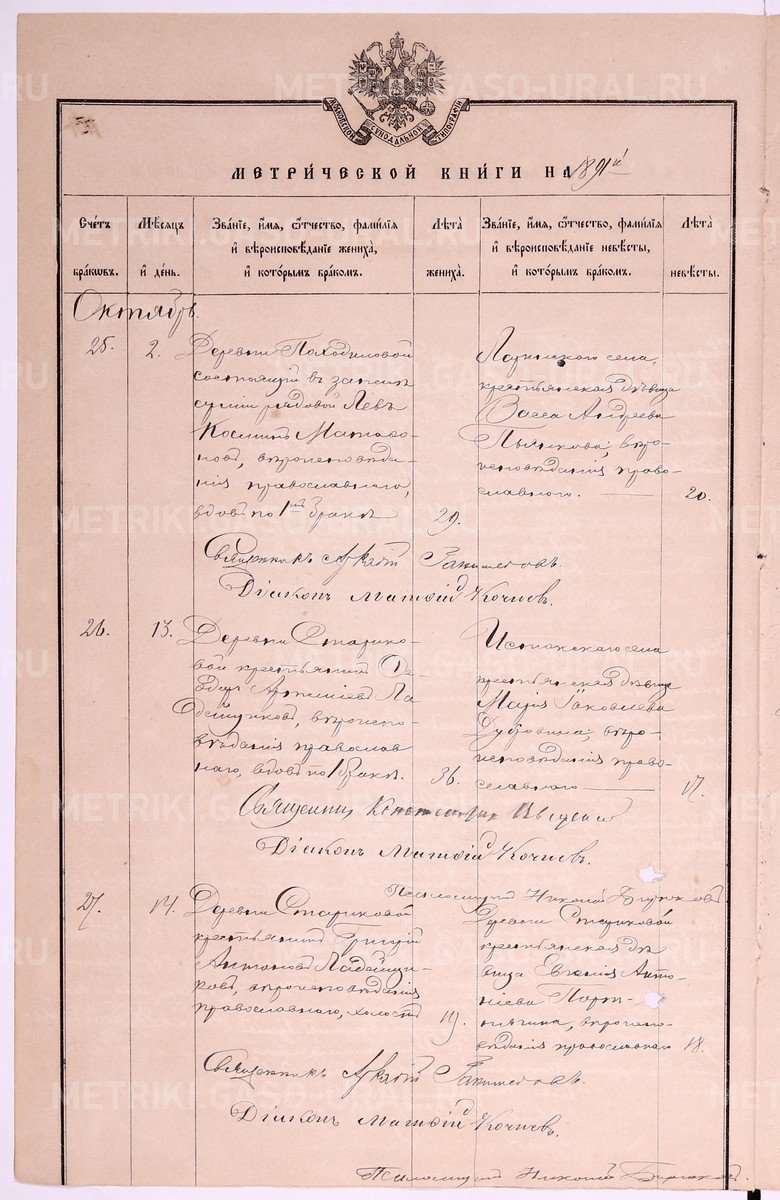 МОСКОВСКОЙ СѴНОДАЛЬНОЙ ТИПОГРАФІИ
МЕТРИ́ЧЕСКОЙ КНИ́ГИ НА 1891й
Сче́тъ бра́кѡвъ.
Мѣ́сяцъ и҆ де́нь.
Зва́нїе, и҆́мѧ, ѻ҆́тчество, фами́лїѧ и҆ вѣроисповѣ́данїе жениха̀, и҆ кото́рымъ бра́комъ.
Лѣ́та жениха̀.
Зва́нїе, и҆́мѧ, ѻ҆́тчество, фами́лїѧ и҆ вѣроисповѣ́данїе невѣ́сты, и҆ кото́рымъ бра́комъ.
Лѣ́та невѣ́сты.
Октябрь.
25.
2.
Деревни Походиловой
состоящій въ запасѣ
арміи рядовой Левъ
Косминъ
вѣроисповѣда-
нія православнаго,
вдовъ по 1мъ бракѣ
29.
села,
крестьянская дѣвица
Васса Андреева
вѣро-
исповѣданія право-
славнаго.
20.
Священникъ
Діаконъ Матѳій Кочневъ.
26.
13.
Деревни Старико-
вой крестьянинъ Ѳе-
доръ Артеміевъ Ла-
дейщиковъ, вѣроиспо-
вѣданія православ
наго, вдовъ по 1 бракѣ.
36.
Истокскаго села
крестьянская дѣвица
Марія Іаковлева
Дубровина; вѣро-
исповѣданія право-
славнаго
17.
Священникъ Константинъ
Діаконъ Матѳій Кочневъ.
Псаломщикъ Николай
27.
14.
Деревни Стариковой
крестьянинъ Григорій
Антоновъ Ладейщи-
ковъ, вѣроисповѣданія
православнаго, холостъ
19.
Деревни Стариковой
крестьянская дѣ
вица Евгенія Анто-
ніева Порт-
нягина, вѣроиспо-
вѣданія православнаго
18.
Священникъ
Діаконъ Матѳій Кочневъ.
Псаломщикъ Николай
METRIKI.GASO-URAL.RU